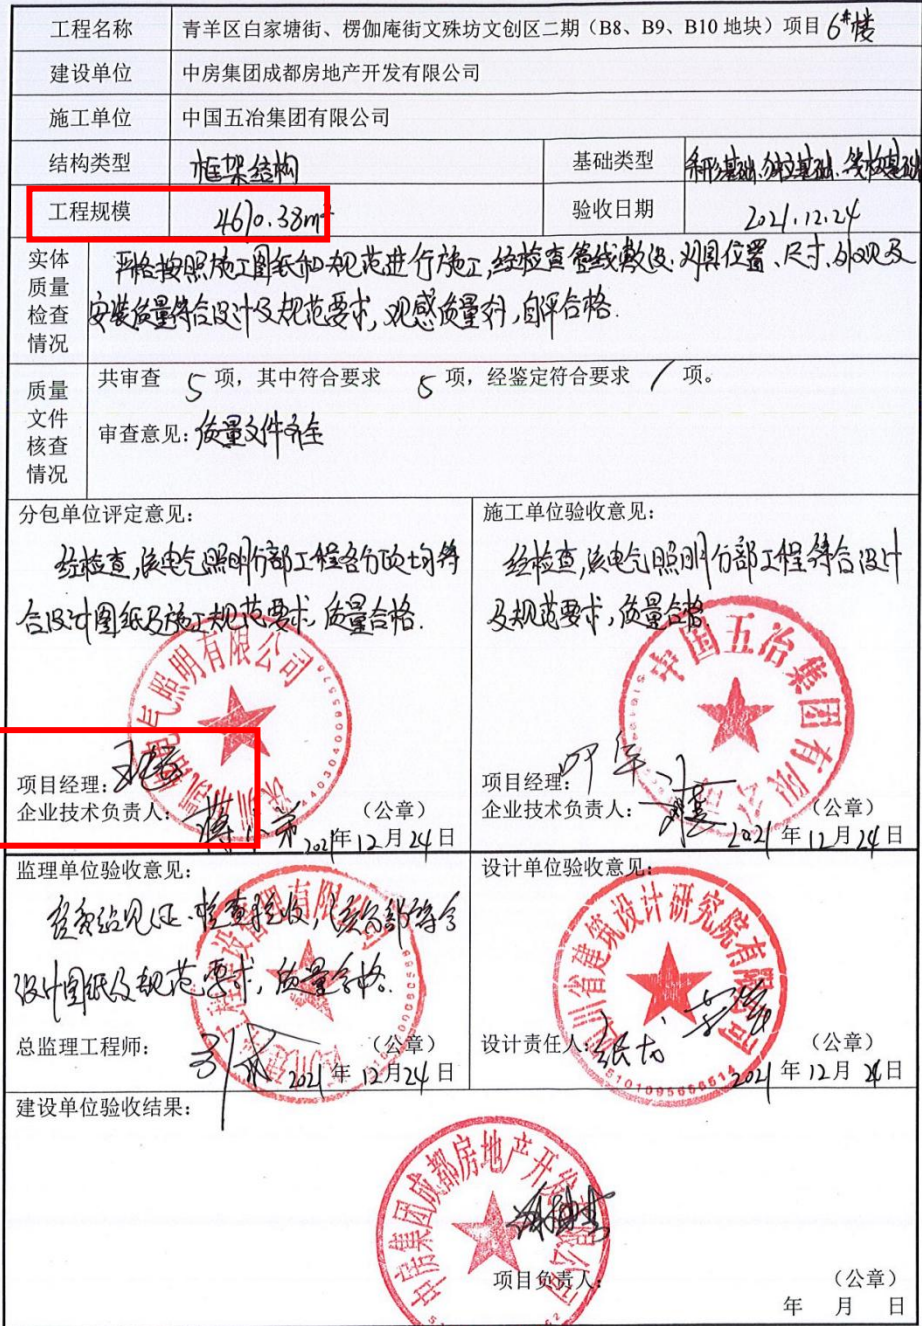 工程名称 青羊区白家塘街、楞伽庵街文殊坊文创区二期（B8、B9、B10 地块）项目 6#楼
建设单位 中房集团成都房地产开发有限公司
施工单位 中国五冶集团有限公司
结构类型 框架结构 基础类型 条形基础、独立基础、筏板基础
工程规模 4670.38m² 验收日期 2021.12.24
实体质量检查情况
严格按照施工图纸和规范进行施工,经检查管线敷设、灯具位置、尺寸、外观及
安装质量符合设计及规范要求,观感质量好,自评合格.
质量文件核查情况
共审查 5 项，其中符合要求 5 项，经鉴定符合要求 / 项。
审查意见：质量文件齐全
分包单位评定意见：
经检查,该电气照明分部工程各分项均符
合设计图纸及施工规范要求,质量合格.
电气照明有限公司
项目经理：
企业技术负责人： （公章）
2021年12月24日
施工单位验收意见：
经检查,该电气照明分部工程符合设计
及规范要求,质量合格.
中国五冶集团有限公司
项目经理：
企业技术负责人： （公章）
2021年12月24日
监理单位验收意见：
检查验收,该分部符合
设计图纸及规范要求,质量合格.
总监理工程师： （公章）
2021年12月24日
设计单位验收意见：
四川省建筑设计研究院有限公司
设计责任人： （公章）
2021年12月24日
建设单位验收结果：
中房集团成都房地产开发有限公司
项目负责人： （公章）
年 月 日